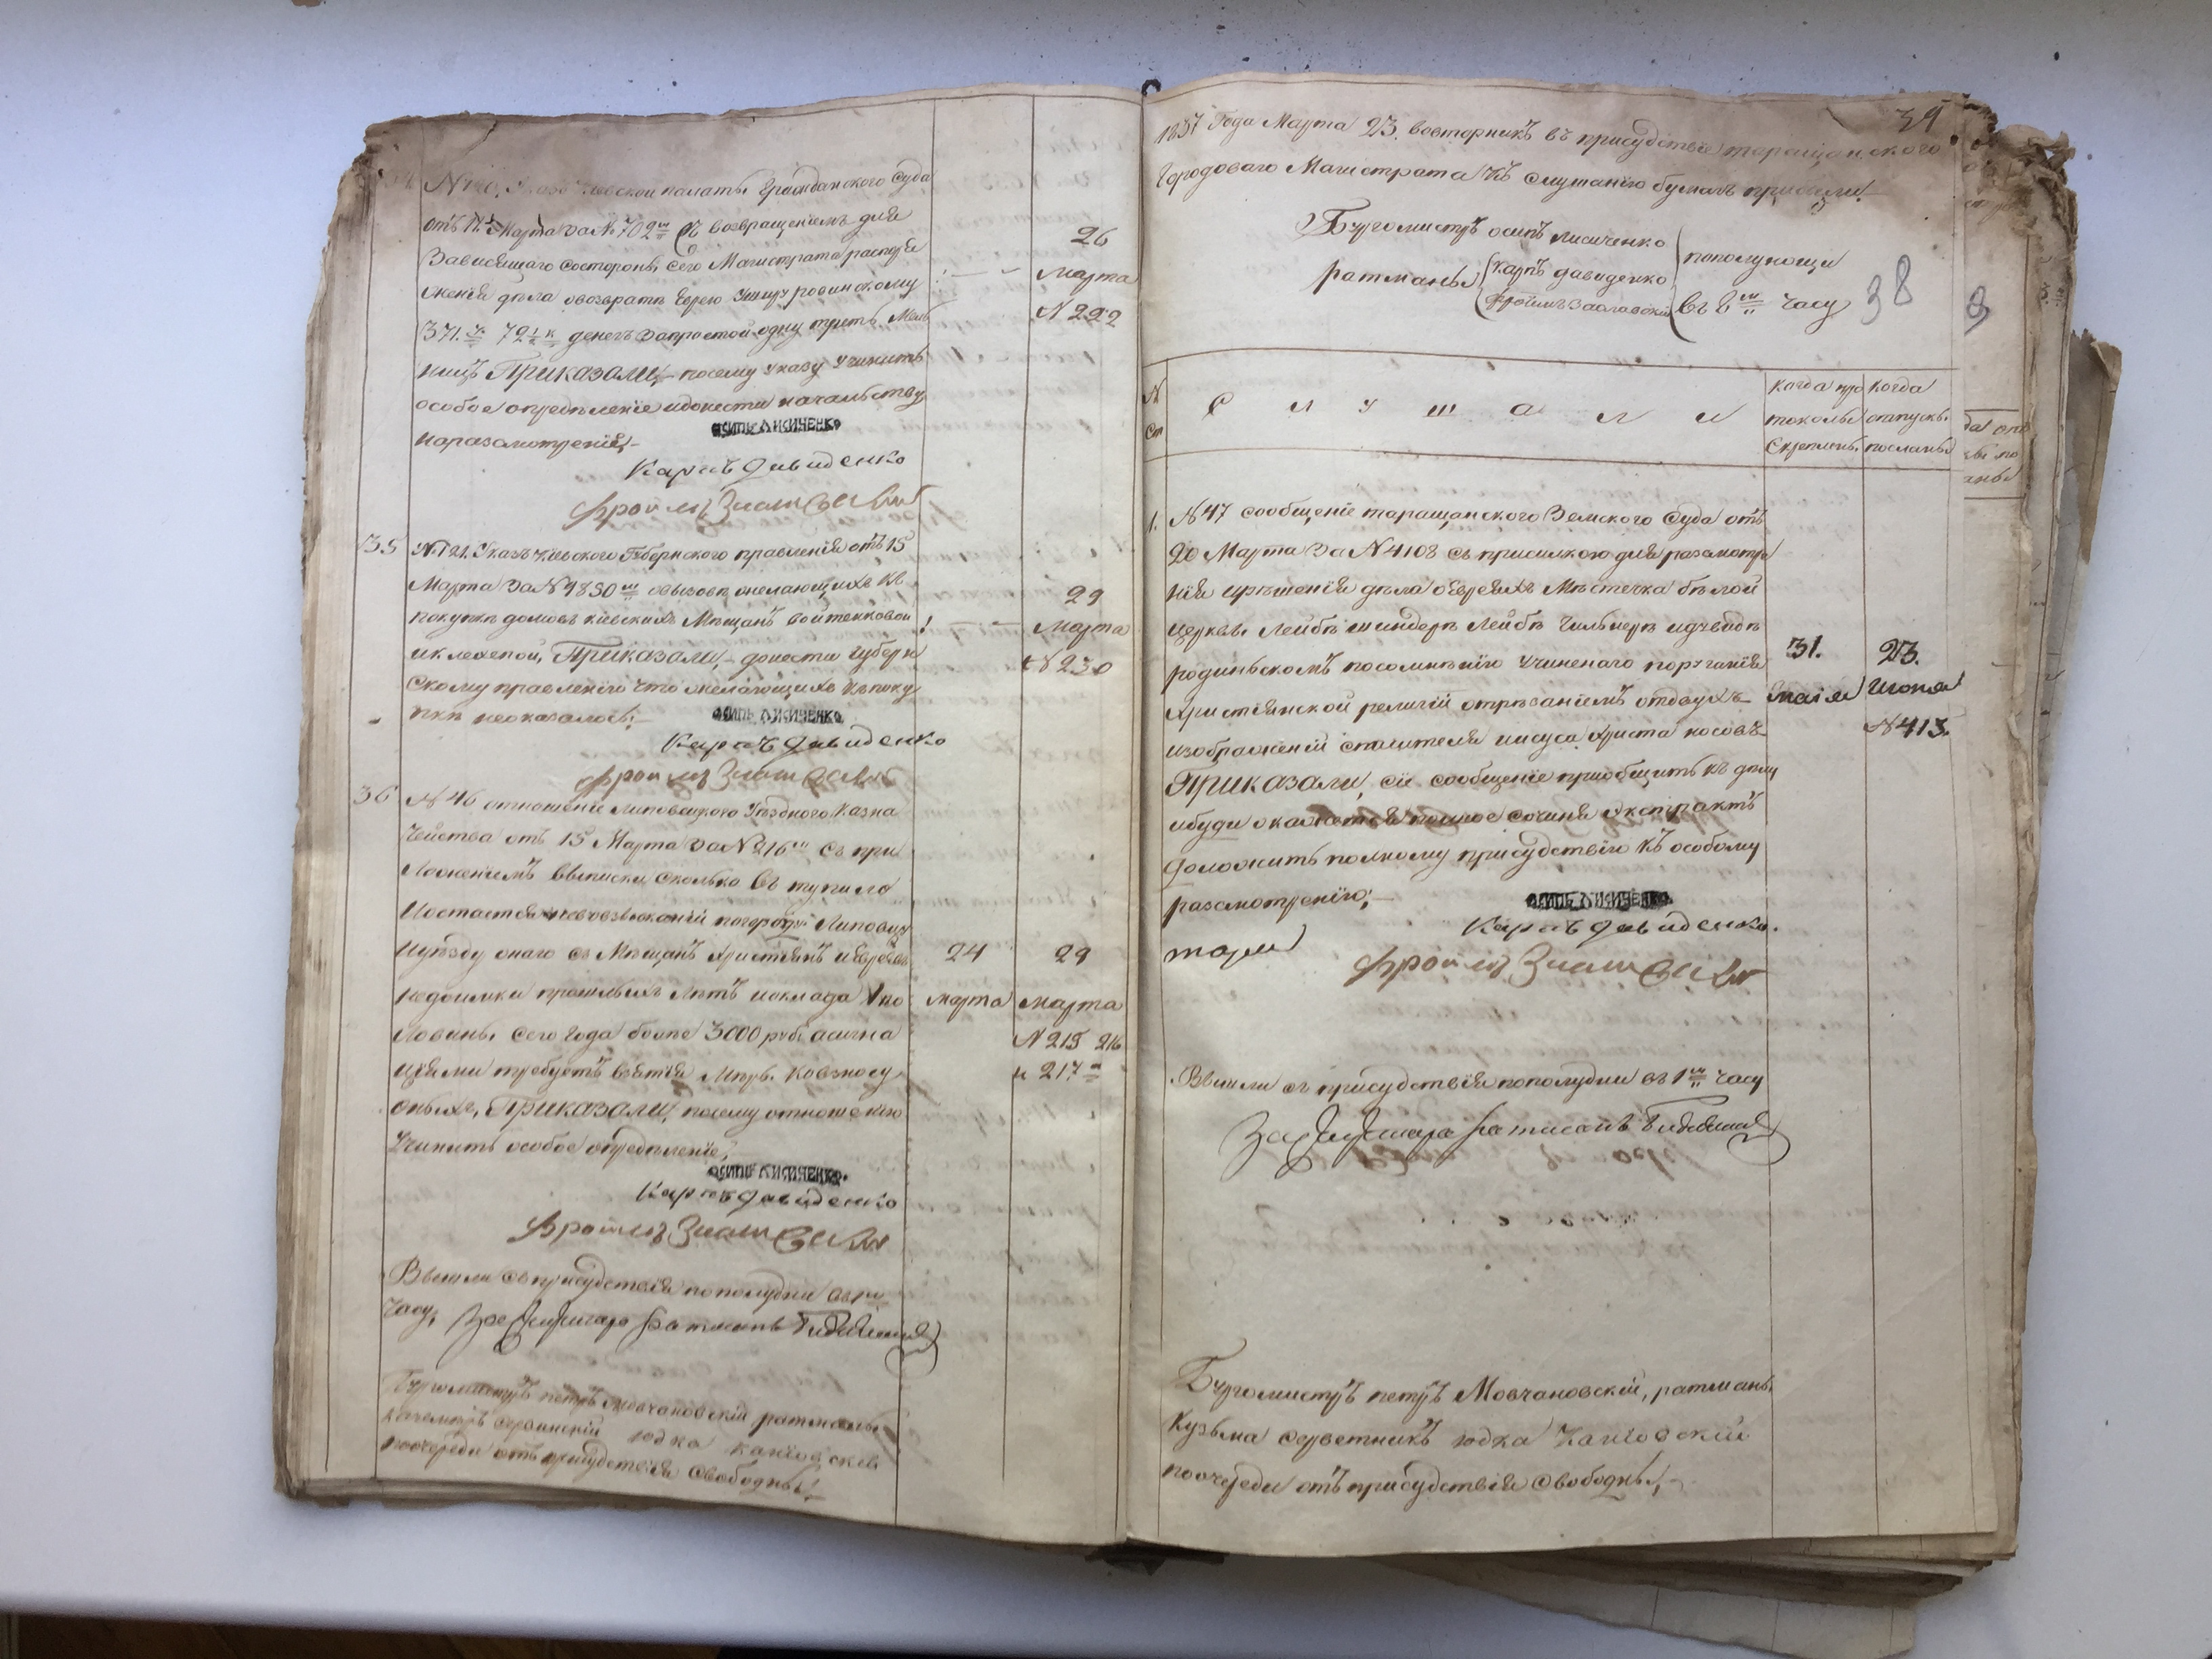 34. №120. Указ Киевской палаты Гражданского Суда
отъ 11 Марта за № 702м съ возвращениемъ для
Зависящаго состороны сего Магистрата распоря
жения дѣла овозвратѣ Еврею ровинскому
371. р. 72½ к денегъ запростой одну треть Мель
ницъ Приказали, – посему указу учинить
особое определение идонести начальству
наразсмотрение, –
ОСИПЪ ЛИСИЧЕНКО
Карпъ давиденко
Фроимъ Заславскій
26
Марта
№ 222
35 №121. Указъ Киевского Губернского правления отъ 15
Марта за № 9830м овызовѣ желающихъ къ
покупкѣ домовъ киевскихъ Мѣщанъ войтенковой
Приказали, – донести Губерн
скому правлению что желающихъ къпоку
пкѣ неоказалось; –
29
Марта
№ 230
ОСИПЪ ЛИСИЧЕНКО
Карпъ давиденко
Фроимъ Заславскій
36 № 46 отношение Липовецкого Уѣзднаго Казна
чейства отъ 15 Марта за № 216м съ при
ложениемъ выписки сколько въ тупило
иостается невовзысканий погороду Липовцу
иуѣзду онаго съ Мѣщанъ християнъ иевреевъ
недоимки прошлыхъ лѣтъ иоклада 1 по
ловины сего года болѣе 3000 руб. асигна
циями требуетъ взятия Мѣръ ковзносу
оныхъ, Приказали, посему отношению
учинить особое определение,
24
марта
29
марта
№ 215 216
и 217м
ОСИПЪ ЛИСИЧЕНКО
Карпъ давиденко
Фроимъ Заславскій
Вышли съприсудствия пополудни въ 1м
часу,
Бургомистръ петръ Мовчановский ратманы
юдка каниовский
поочереди отъ присудствия свободны; –
39
1837 года Марта 23. вовторникъ въ присудствие таращанского
Городоваго Магистрата къ слушанию бумагъ прибыли
Бургомистръ осипъ лисиченко
ратманы карпъ давиденко
фроимъ Заславский
пополунощи
въ 8м часу
38
№
Ст
С л у ш а л и
когда про
токолы
Скреплены
когда
отпуски
посланы
1. № 47 сообщение таращанского Земского Суда отъ
20 Марта за № 4108 съ присилкою для разсмотре
ния ирѣшения дѣла о Евреяхъ Мѣстечка бѣлой
церкви Лейбѣ шиндерѣ Лейбѣ
родинскомъ посомнѣнию учиненаго поругания
християнской религии отрѣзаниемъ отдвухъ
изображений спасителя иисуса христа носовъ
Приказали, сие сообщение приобщить къ делу
ибуди окажется полное сочиня екстрактъ
доложить полному присудствию къ особому
разсмотрению; –
31.
Маия
23.
Июня
№ 413.
ОСИПЪ ЛИСИЧЕНКО
Карпъ давиденко.
Фроимъ Заславскій
Вышли съ присудствия пополудни въ 1м часу
Бургомистръ петръ Мовчановский, ратманы
Кузьма серветникъ юдка Каниовский
поочереди отъ присудствия свободны, –